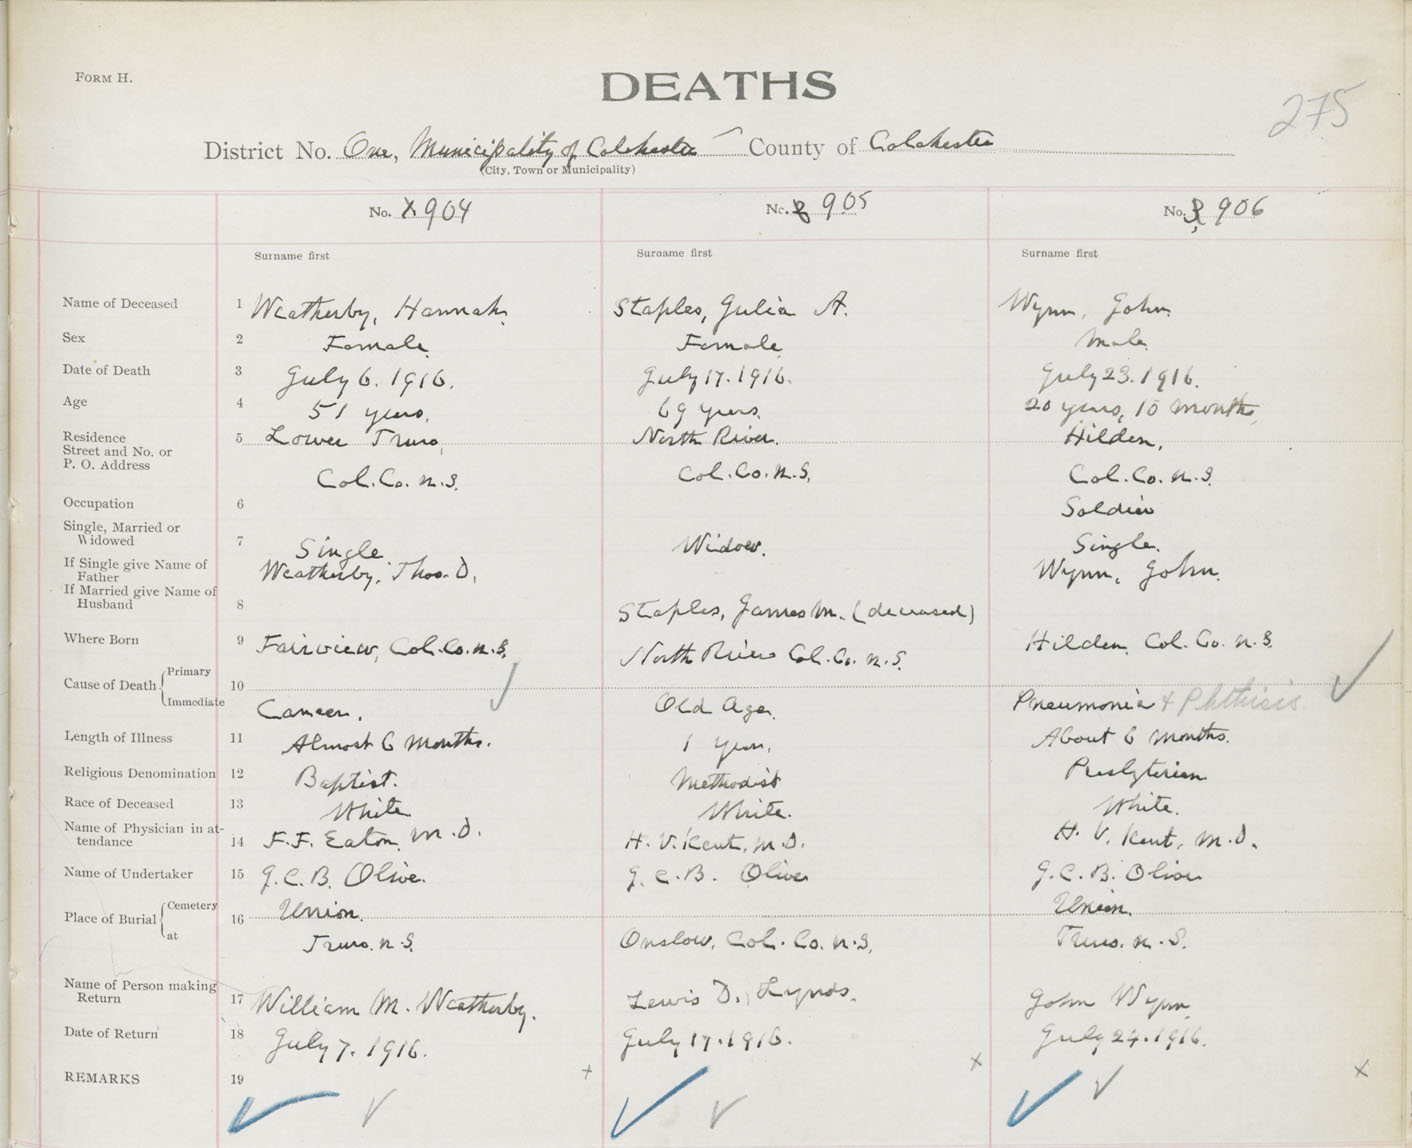 FORM H.
DEATHS
275
District No. One, Municipality of Colchester County of Colchester
(City, Town or Municipality)
No. 904 No. 905 No. 906
Surname first Surname first Surname first
Name of Deceased 1 Weatherby, Hannah. Staples, Julia A. Wynn, John.
Sex 2 Female Female Male
Date of Death 3 July 6. 1916. July 17. 1916. July 23. 1916.
Age 4 51 years. 69 years. 20 years, 10 months
Residence 5 Lower Truro, North River. Hilden,
Street and No. or
P. O. Address Col. Co. N.S. Col. Co. N.S. Col. Co. N.S.
Occupation 6 Soldier
Single, Married or
Widowed 7 Single Widow. Single.
If Single give Name of
Father Weatherby, Thos. D. Wynn, John.
If Married give Name of
Husband 8 Staples, James M. (deceased)
Where Born 9 Fairview, Col. Co. N.S. North River Col. Co. N.S. Hilden, Col. Co. N.S.
Primary
Cause of Death 10
Immediate Cancer. Old Age. Pneumonia + Phthisis
Length of Illness 11 Almost 6 months. 1 year. About 6 months.
Religious Denomination 12 Baptist. Methodist Presbyterian
Race of Deceased 13 White White. White.
Name of Physician in at-
tendance 14 F. F. Eaton, M.D. H. V. Kent, M.D. H. V. Kent, M.D.
Name of Undertaker 15 G. C. B. Olive. G. C. B. Olive G. C. B. Olive
Cemetery Union. Union.
Place of Burial 16
at Truro. N.S. Onslow, Col. Co. N.S. Truro. N.S.
Name of Person making
Return 17 William M. Weatherby. Lewis D. Lynds. John Wynn
Date of Return 18 July 7. 1916. July 17. 1916. July 24. 1916.
REMARKS 19